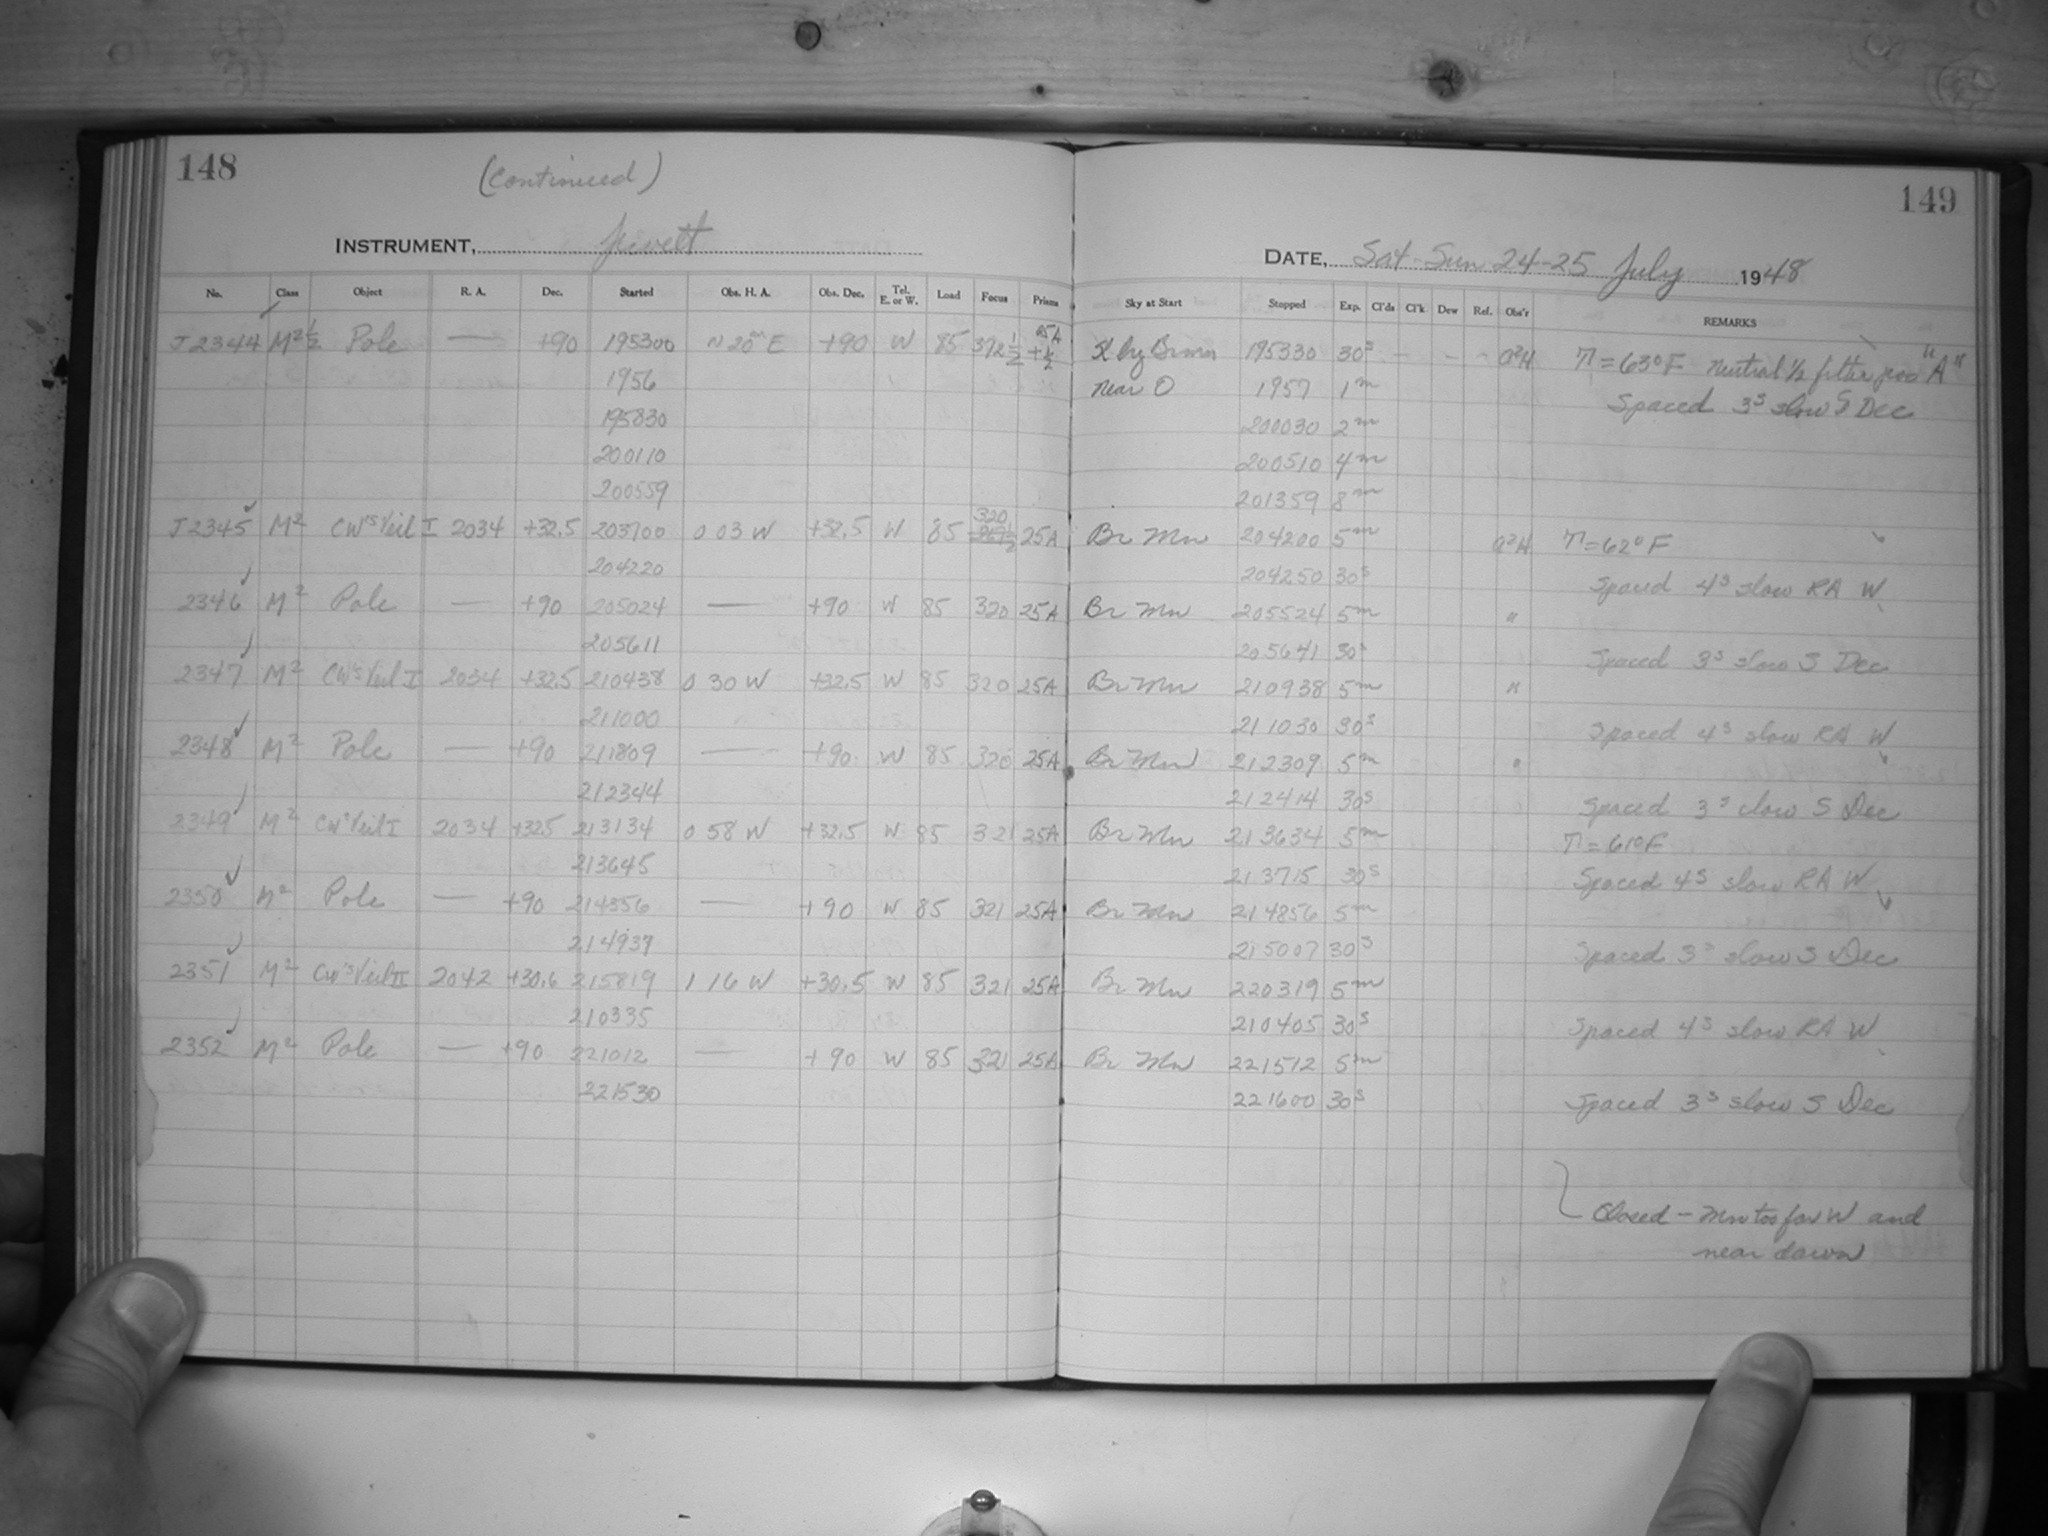 148 (Continued)
INSTRUMENT, Jewett
No. Class Object R. A. Dec. Started Obs. H. A. Obs. Dec. Tel. E. or W. Load Focus Prisms
J2344 M2½ Pole — +90 195300 ~20m E +90 W 85 372½ 25A +½
1956
195830
200110
200559
J2345 M2 CW's Veil I 2034 +32.5 203700 0 03 W +32.5 W 85 320 25A
204220
2346 M2 Pole — +90 205024 — +90 W 85 320 25A
205611
2347 M2 CW's Veil I 2034 +32.5 210438 0 30 W +32.5 W 85 320 25A
211000
2348 M2 Pole — +90 211809 — +90 W 85 320 25A
212344
2349 M2 CW's Veil I 2034 +325 213134 0 58 W +32.5 W 85 321 25A
213645
2350 M2 Pole — +90 214356 — +90 W 85 321 25A
214937
2351 M2 CW's Veil II 2042 +30.6 215819 1 16 W +30.5 W 85 321 25A
210335
2352 M2 Pole — +90 221012 — +90 W 85 321 25A
221530
149
DATE, Sat-Sun 24-25 July 1948
Sky at Start Stopped Exp. Cl'ds Cl'k Dew Ref. Obs'r REMARKS
195330 30s — – - T=63°F Neutral ½ filter "A"
near 1957 1m Spaced 3s slow S Dec
200030 2m
200510 4m
201359 8m
Br Mn 204200 5m T=62°F
204250 30s Spaced 4s slow RA W
Br Mn 205524 5m "
205641 30s Spaced 3s slow S Dec
Br Mn 210938 5m "
211030 30s Spaced 4s slow RA W
Br Mn 212309 5m "
212414 30s Spaced 3s slow S Dec
Br Mn 213634 5m T=61°F
213715 30s Spaced 4s slow RA W
Br Mn 214856 5m
215007 30s Spaced 3s slow S Dec
Br Mn 220319 5m
210405 30s Spaced 4s slow RA W
Br Mn 221512 5m
221600 30s Spaced 3s slow S Dec
Closed – Mn too far W and
near dawn